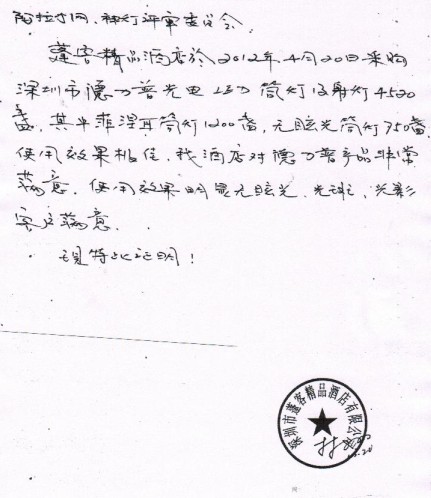 阿拉丁网、神灯评审委员会
蓬客精品酒店於2012年4月20日采购
深圳市德力普光电LED筒灯及射灯4520
盏，其中菲涅耳筒灯1200盏，无眩光筒灯750盏，
使用效果极佳，我酒店对德力普产品非常
满意，使用效果明显无眩光、光斑、光影
客户满意．
特此证明！
深圳市蓬客精品酒店有限公司